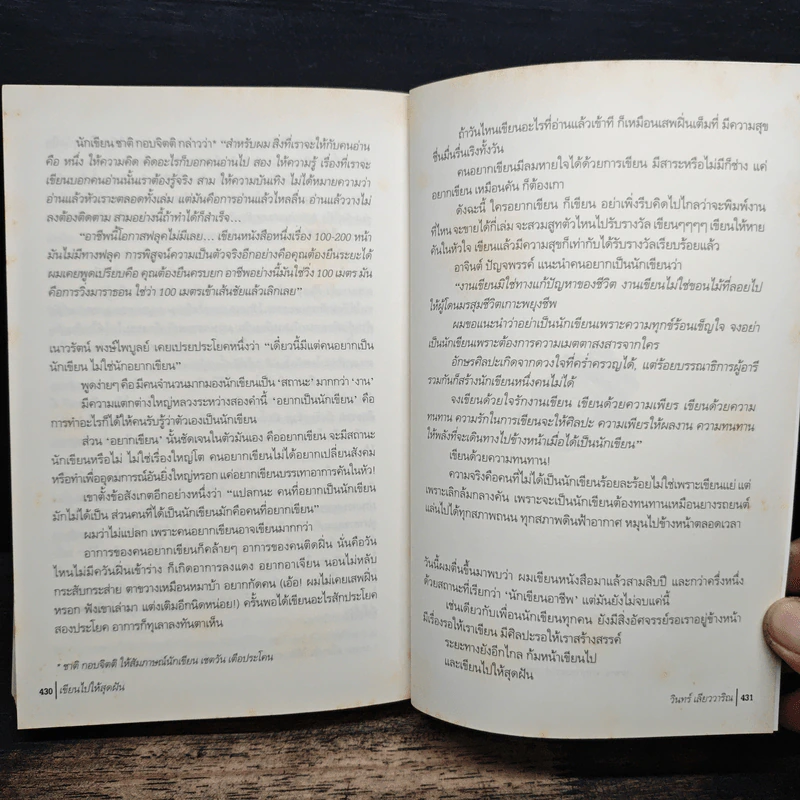 นักเขียน ชาติ กอบจิตติ กล่าวว่า* “สำหรับผม สิ่งที่เราจะให้กับคนอ่าน
คือ หนึ่ง ให้ความคิด คิดอะไรก็บอกคนอ่านไป สอง ให้ความรู้ เรื่องที่เราจะ
เขียนบอกคนอ่านนั้นเราต้องรู้จริง สาม ให้ความบันเทิง ไม่ได้หมายความว่า
อ่านแล้วหัวเราะตลอดทั้งเล่ม แต่มันคือการอ่านแล้วไหลลื่น อ่านแล้ววางไม่
ลงต้องติดตาม สามอย่างนี้ถ้าทำได้ก็สำเร็จ...
“อาชีพนี้โอกาสฟลุคไม่มีเลย... เขียนหนังสือหนึ่งเรื่อง 100-200 หน้า
มันไม่มีทางฟลุค การพิสูจน์ความเป็นตัวจริงอีกอย่างคือคุณต้องยืนระยะได้
ผมเคยพูดเปรียบคือ คุณต้องยืนครบยก อาชีพอย่างนี้มันไม่ใช่วิ่ง 100 เมตร มัน
คือการวิ่งมาราธอน ใช่ว่า 100 เมตรเข้าเส้นชัยแล้วเลิกเลย”
เนาวรัตน์ พงษ์ไพบูลย์ เคยเปรยประโยคหนึ่งว่า “เดี๋ยวนี้มีแต่คนอยากเป็น
นักเขียน ไม่ใช่นักอยากเขียน”
พูดง่ายๆ คือ มีคนจำนวนมากมองนักเขียนเป็น ‘สถานะ’ มากกว่า ‘งาน’
มีความแตกต่างใหญ่หลวงระหว่างสองคำนี้ ‘อยากเป็นนักเขียน’ คือ
การทำอะไรก็ได้ให้คนรับรู้ว่าตัวเองเป็นนักเขียน
ส่วน ‘อยากเขียน’ นั้นชัดเจนในตัวมันเอง คืออยากเขียน จะมีสถานะ
นักเขียนหรือไม่ ไม่ใช่เรื่องใหญ่โต คนอยากเขียนไม่ได้อยากเปลี่ยนสังคม
หรือทำเพื่ออุดมการณ์อันยิ่งใหญ่หรอก แค่อยากเขียนบรรเทาอาการคันในหัว!
เขาตั้งข้อสังเกตอีกอย่างหนึ่งว่า “แปลกนะ คนที่อยากเป็นนักเขียน
มักไม่ได้เป็น ส่วนคนที่ได้เป็นนักเขียนมักคือคนที่อยากเขียน”
ผมว่าไม่แปลก เพราะคนอยากเขียนอาจเขียนมากกว่า
อาการของคนอยากเขียนก็คล้ายๆ อาการของคนติดฝิ่น นั่นคือวัน
ไหนไม่มีควันฝิ่นเข้าร่าง ก็เกิดอาการลงแดง อยากอาเจียน นอนไม่หลับ
กระสับกระส่าย ตาขวางเหมือนหมาบ้า อยากกัดคน (เอ้อ! ผมไม่เคยเสพฝิ่น
หรอก ฟังเขาเล่ามา แต่งเติมอีกนิดหน่อย!) ครั้นพอได้เขียนอะไรสักประโยค
สองประโยค อาการก็ทุเลาลงทันตาเห็น
* ชาติ กอบจิตติ ให้สัมภาษณ์นักเขียน เชตวัน เตือประโคน
430 เขียนไปให้สุดฝัน
ถ้าวันไหนเขียนอะไรที่อ่านแล้วเข้าที ก็เหมือนเสพฝิ่นเต็มที่ มีความสุข
ชื่นมื่นรื่นเริงทั้งวัน
คนอยากเขียนมีลมหายใจได้ด้วยการเขียน มีสาระหรือไม่มีก็ช่าง แค่
อยากเขียน เหมือนคัน ก็ต้องเกา
ดังฉะนี้ ใครอยากเขียน ก็เขียน อย่าเพิ่งรีบคิดไปไกลว่าจะพิมพ์งาน
ที่ไหน จะขายได้กี่เล่ม จะสวมสูทตัวไหนไปรับรางวัล เขียนๆๆๆๆ เขียนให้หาย
คันในหัวใจ เขียนแล้วมีความสุขก็เท่ากับได้รับรางวัลเรียบร้อยแล้ว
อาจินต์ ปัญจพรรค์ แนะนำคนอยากเป็นนักเขียนว่า
“งานเขียนมิใช่ทางแก้ปัญหาของชีวิต งานเขียนไม่ใช่ขอนไม้ที่ลอยไป
ให้ผู้โดนมรสุมชีวิตเกาะพยุงชีพ
ผมขอแนะนำว่าอย่าเป็นนักเขียนเพราะความทุกข์ร้อนเข็ญใจ จงอย่า
เป็นนักเขียนเพราะต้องการความเมตตาสงสารจากใคร
อักษรศิลปะเกิดจากดวงใจที่คร่ำครวญได้, แต่ร้อยบรรณาธิการผู้อารี
รวมกันก็สร้างนักเขียนหนึ่งคนไม่ได้
จงเขียนด้วยใจรักงานเขียน เขียนด้วยความเพียร เขียนด้วยความ
ทนทาน ความรักในการเขียนจะให้ศิลปะ ความเพียรให้ผลงาน ความทนทาน
ให้พลังที่จะเดินทางไปข้างหน้าเมื่อได้เป็นนักเขียน”
เขียนด้วยความทนทาน!
ความจริงคือคนที่ไม่ได้เป็นนักเขียนร้อยละร้อยไม่ใช่เพราะเขียนแย่ แต่
เพราะเลิกล้มกลางคัน เพราะจะเป็นนักเขียนต้องทนทานเหมือนยางรถยนต์
แล่นไปได้ทุกสภาพถนน ทุกสภาพดินฟ้าอากาศ หมุนไปข้างหน้าตลอดเวลา
วันนี้ผมตื่นขึ้นมาพบว่า ผมเขียนหนังสือมาแล้วสามสิบปี และกว่าครึ่งหนึ่ง
ด้วยสถานะที่เรียกว่า ‘นักเขียนอาชีพ’ แต่มันยังไม่จบแค่นี้
เช่นเดียวกับเพื่อนนักเขียนทุกคน ยังมีสิ่งอัศจรรย์รอเราอยู่ข้างหน้า
มีเรื่องรอให้เราเขียน มีศิลปะรอให้เราสร้างสรรค์
ระยะทางยังอีกไกล ก้มหน้าเขียนไป
และเขียนไปให้สุดฝัน
วินทร์ เลียววาริณ 431